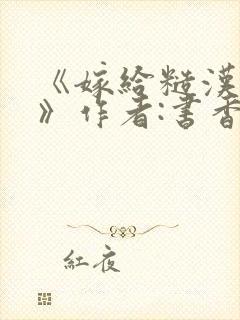 《嫁給糙漢
》作者:書香
紅夜